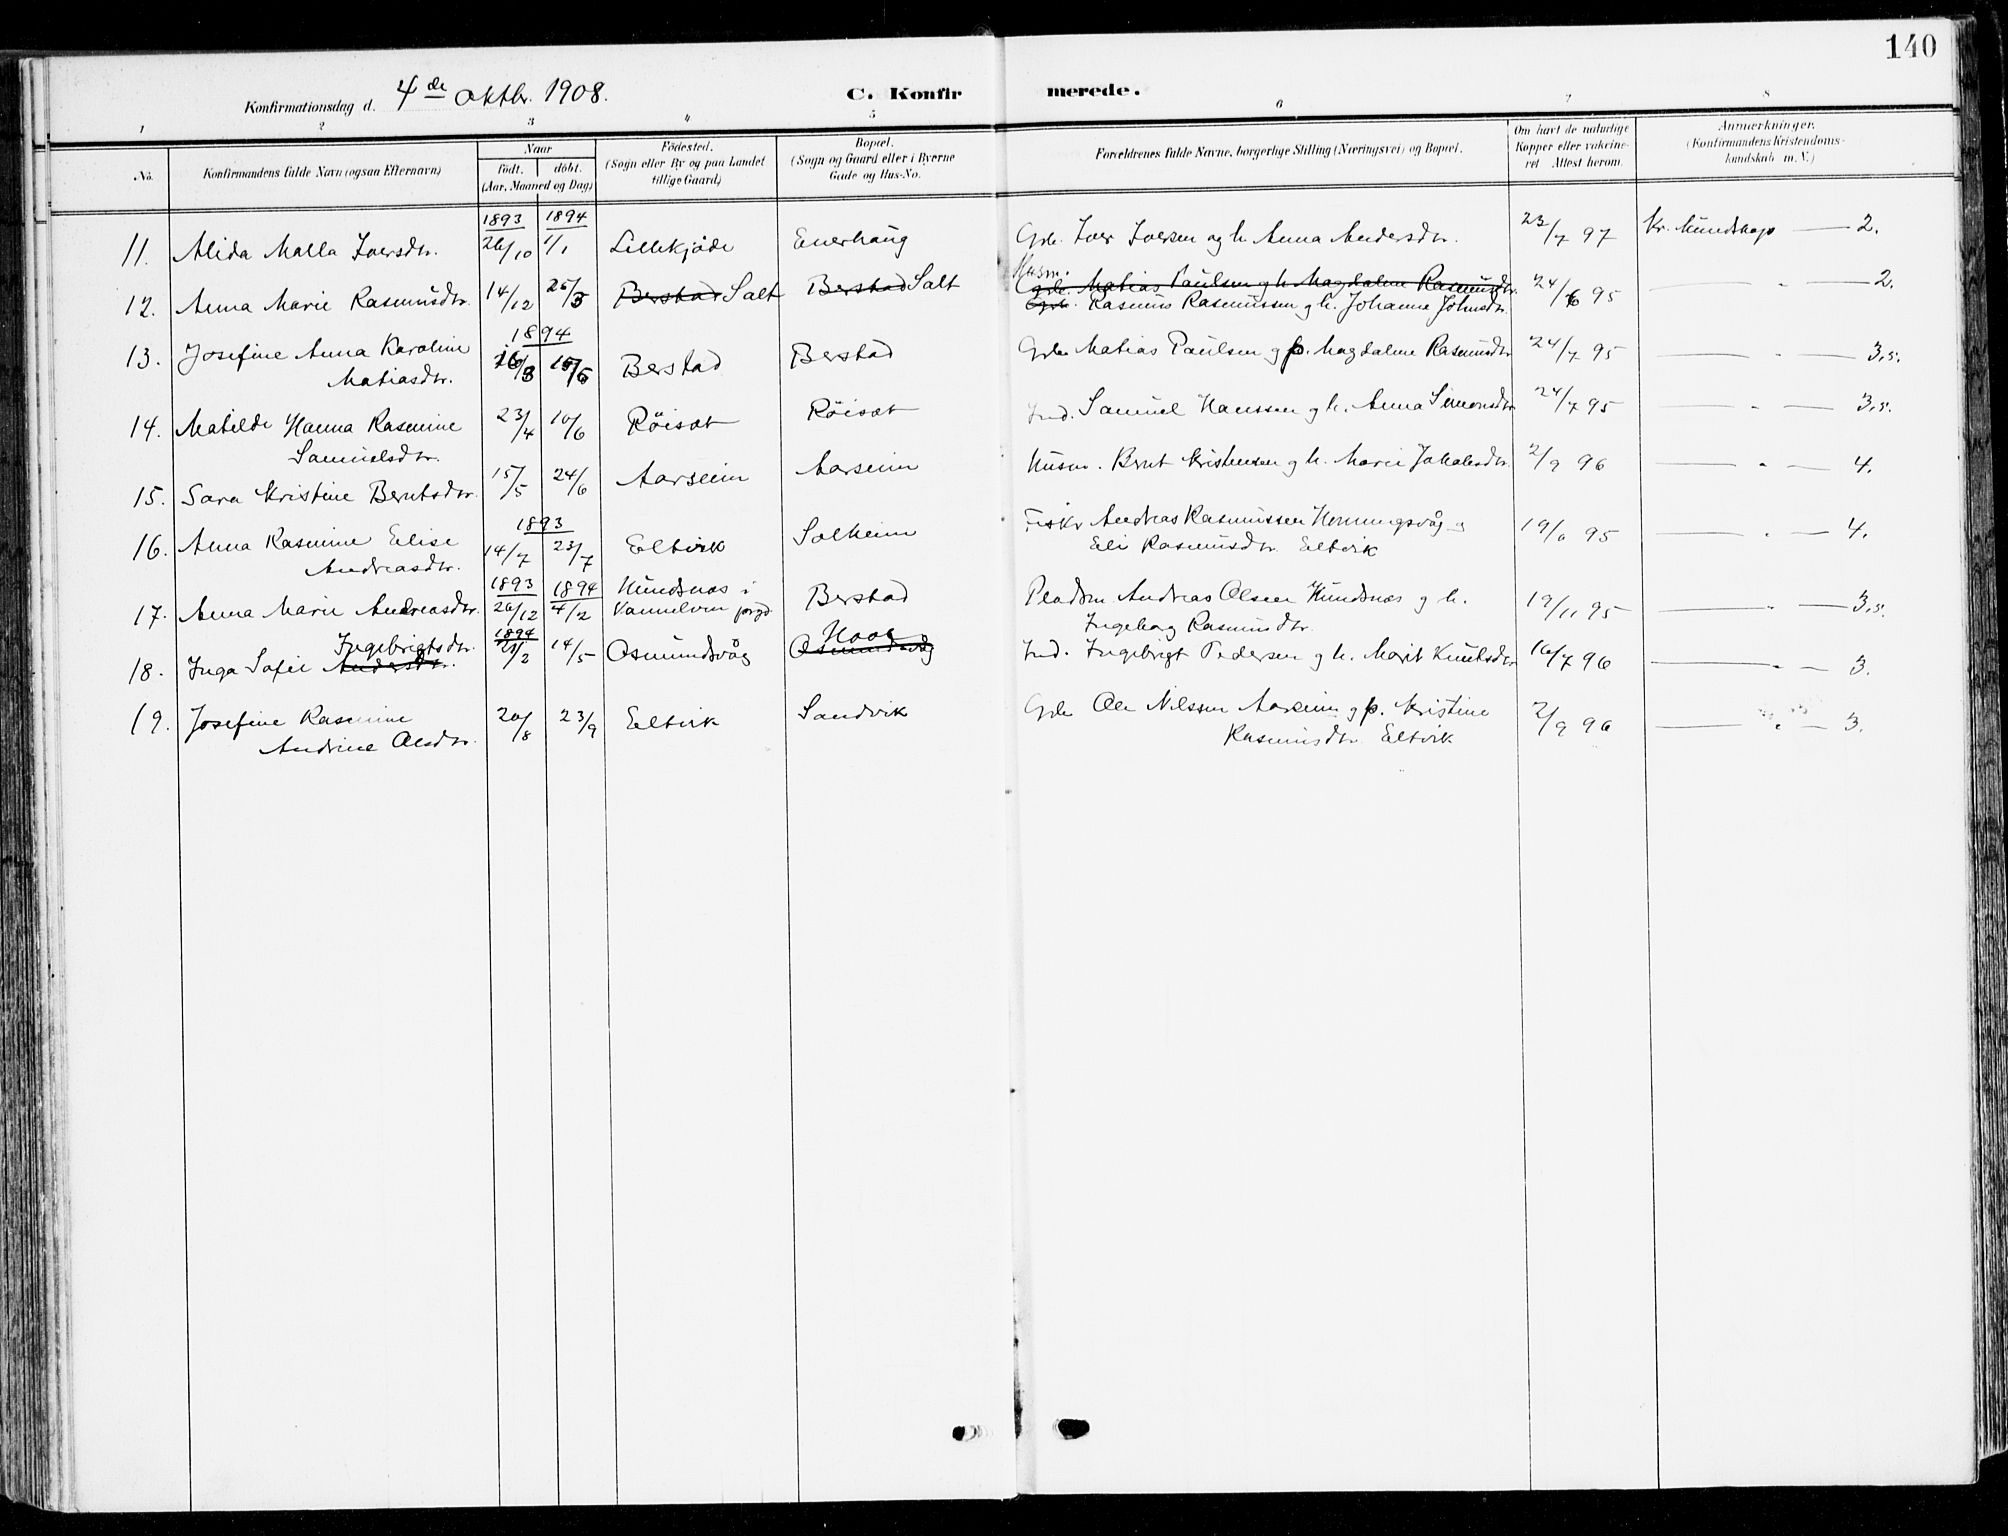 140
Konfirmationsdag d. 4de Oktbr. 1908.
C. Konfirmerede.
1 2 3 4 5 6 7 8
No.
Konfirmandens fulde Navn (ogsaa Efternavn)
Naar
født. døbt.
(Aar, Maaned og Dag)
Fødested.
(Sogn eller By og paa Landet
tillige Gaard)
Bopæl.
(Sogn og Gaard eller i Byerne
Gade og Hus-No.
Forældrenes fulde Navne, borgerlige Stilling (Næringsvei) og Bopæl.
Om havt de naturlige
Kopper eller vakcine-
ret Attest herom.
Anmærkninger.
(Konfirmandens Kristendoms-
kundskab m. V.)
1893 1894
11. Alida Malla Iversdtr. 26/10 1/1 Lillekjøde Enerhaug Gbr. Iver Iversen og h. Anna Andersdtr. 23/7 97 Kr. kundskap — 2.
Husm.
12. Anna Marie Rasmusdtr. 14/12 25/3 Berstad Salt Berstad Salt Gbr. Matias Paulsen g h. Magdalene Rasmusdtr. 24/6 95 — " — 2.
Gbr. Rasmus Rasmussen g h. Johanne Johnsdtr.
1894
13. Josefine Anna Karoline 16/3 15/5 Berstad Berstad Gbr Matias Paulsen g h. Magdalene Rasmusdtr 24/7 95 — " — 3,5.
Matiasdtr.
14. Matilde Hanna Rasmine 23/4 10/6 Røisæt Røisæt Ind. Samuel Hanssen g h. Anna Simonsdtr 24/7 95 — " — 3,5.
Samuelsdtr.
15. Sara Kristine Berntsdtr. 15/5 24/6 Aarseim Aarseim Husm. Bernt Kristensen g h. Marie Jakobsdtr. 2/9 96 — " — 4.
1893
16. Anna Rasmine Elise 14/7 23/7 Eltvik Solheim Fiskr Andreas Rasmussen Honningsvåg g 95 — " — 4.
Andreasdtr. Eli Rasmusdtr. Eltvik
1893 1894 Hundsnæs i
17. Anna Marie Andreasdtr. 26/12 4/2 Vannelven prgd. Berstad Pladsm Andreas Olsen Hundsnæs g h. 19/11 95 — " — 3,5.
Ingeborg Rasmusdtr.
Ingebrigtsdtr. 1894 Hoos
18. Inga Sofie Andersdtr. 14/5 Osmundsvåg Osmundsvåg Ind. Ingebrigt Pedersen g h. Marit Knutsdtr 16/7 96 — " — 3.
19. Josefine Rasmine 20/8 23/9 Eltvik Sandvik Gbr Ole Nilssen Aarseim g h. Kristine 2/9 96 — " — 3.
Andrine Olsdtr. Rasmusdtr. Eltvik